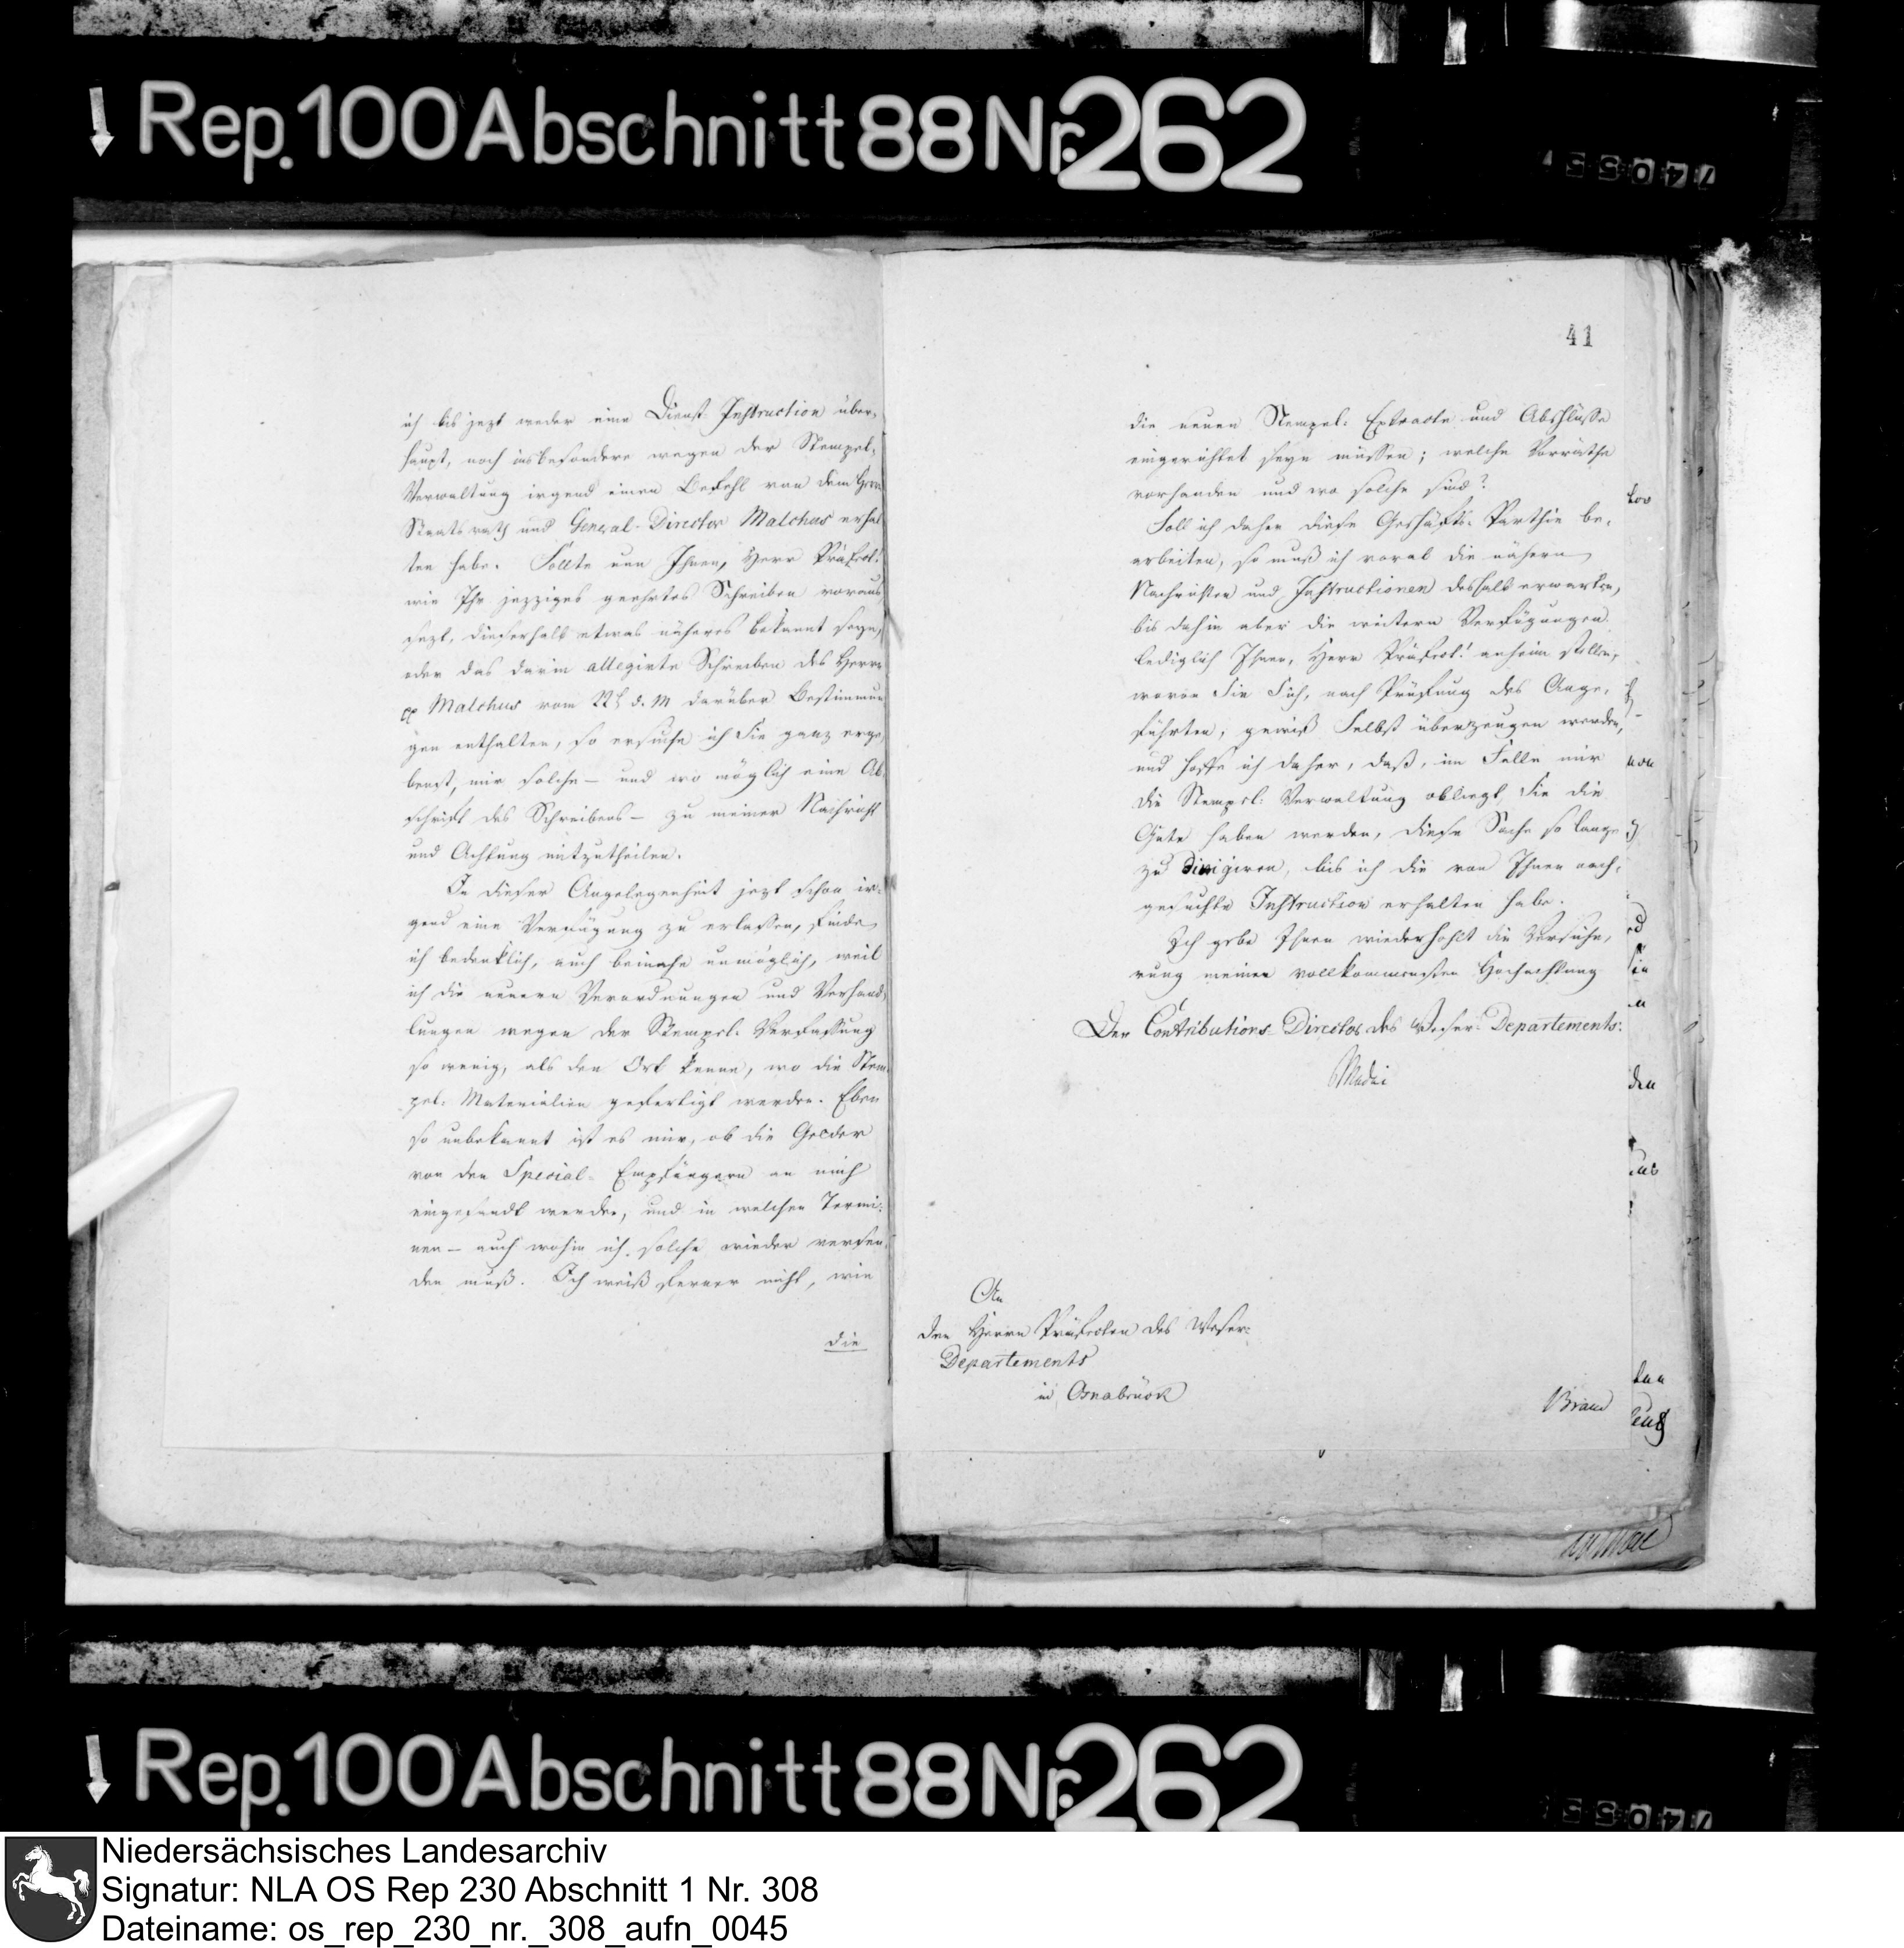 Rep. 100 Abschnitt 88 Nr. 262
74055
ich bis jezt weder eine Dienst-Instruction über-
haupt, noch insbesondere wegen der Stempel-
Verwaltung irgend einen Befehl von dem Herrn
Staatsrath und General-Director Malchus erhal
ten habe. Sollte nun Ihnen, Herr Präfect!
wie Ihr jezziges geehrtes Schreiben voraus
sezt, dieserhalb etwas näheres bekannt seyn,
oder das darin allegirte Schreiben des Herrn
Malchus vom 22t d. M darüber Bestimmun
gen enthalten, so ersuche ich Sie ganz erge
benst, mir solche – und wo möglich eine Ab
schrift des Schreibens – zu meiner Nachricht
und Achtung mitzutheilen.
In dieser Angelegenheit jezt schon ir-
gend eine Verfügung zu erlassen, finde
ich bedenklich, auch beinahe unmöglich, weil
ich die neuern Verordnungen und Verhand-
lungen wegen der Stempel-Verfassung
so wenig, als den Ort kenne, wo die Stem-
pel-Materialien gefertigt werden. Eben
so unbekannt ist es mir, ob die Gelder
von den Special-Empfängern an mich
eingesandt werden, und in welchen Termi-
nen – auch wohin ich solche wieder versen-
den muß. Ich weiß ferner nicht, wie
die
41
die neuen Stempel-Extracte und Abschlüsse
eingerichtet seyn müssen; welche Vorräthe
vorhanden und wo solche sind?
Soll ich daher diese Geschäfts-Parthie be-
arbeiten, so muß ich vorab die nähern
Nachrichten und Instructionen deshalb erwarten,
bis dahin aber die weitern Verfügungen
lediglich Ihnen, Herr Präfect! anheim stellen,
wovon Sie Sich, nach Prüfung des Ange-
führten, gewiß Selbst überzeugen werden,
und hoffe ich daher, daß, im Falle mir
die Stempel-Verwaltung obliegt, Sie die
Güte haben werden, diese Sache so lange
zu dirigiren, bis ich die von Ihnen nach-
gesuchte Instruction erhalten habe.
Ich gebe Ihnen wiederhohlt die Versiche-
rung meiner vollkommensten Hochachtung
Der Contributions-Director des Weser-Departements.
An
den Herrn Präfecten des Weser-
Departements
in Osnabrück
Rep. 100 Abschnitt 88 Nr. 262
Niedersächsisches Landesarchiv
Signatur: NLA OS Rep 230 Abschnitt 1 Nr. 308
Dateiname: os_rep_230_nr._308_aufn_0045